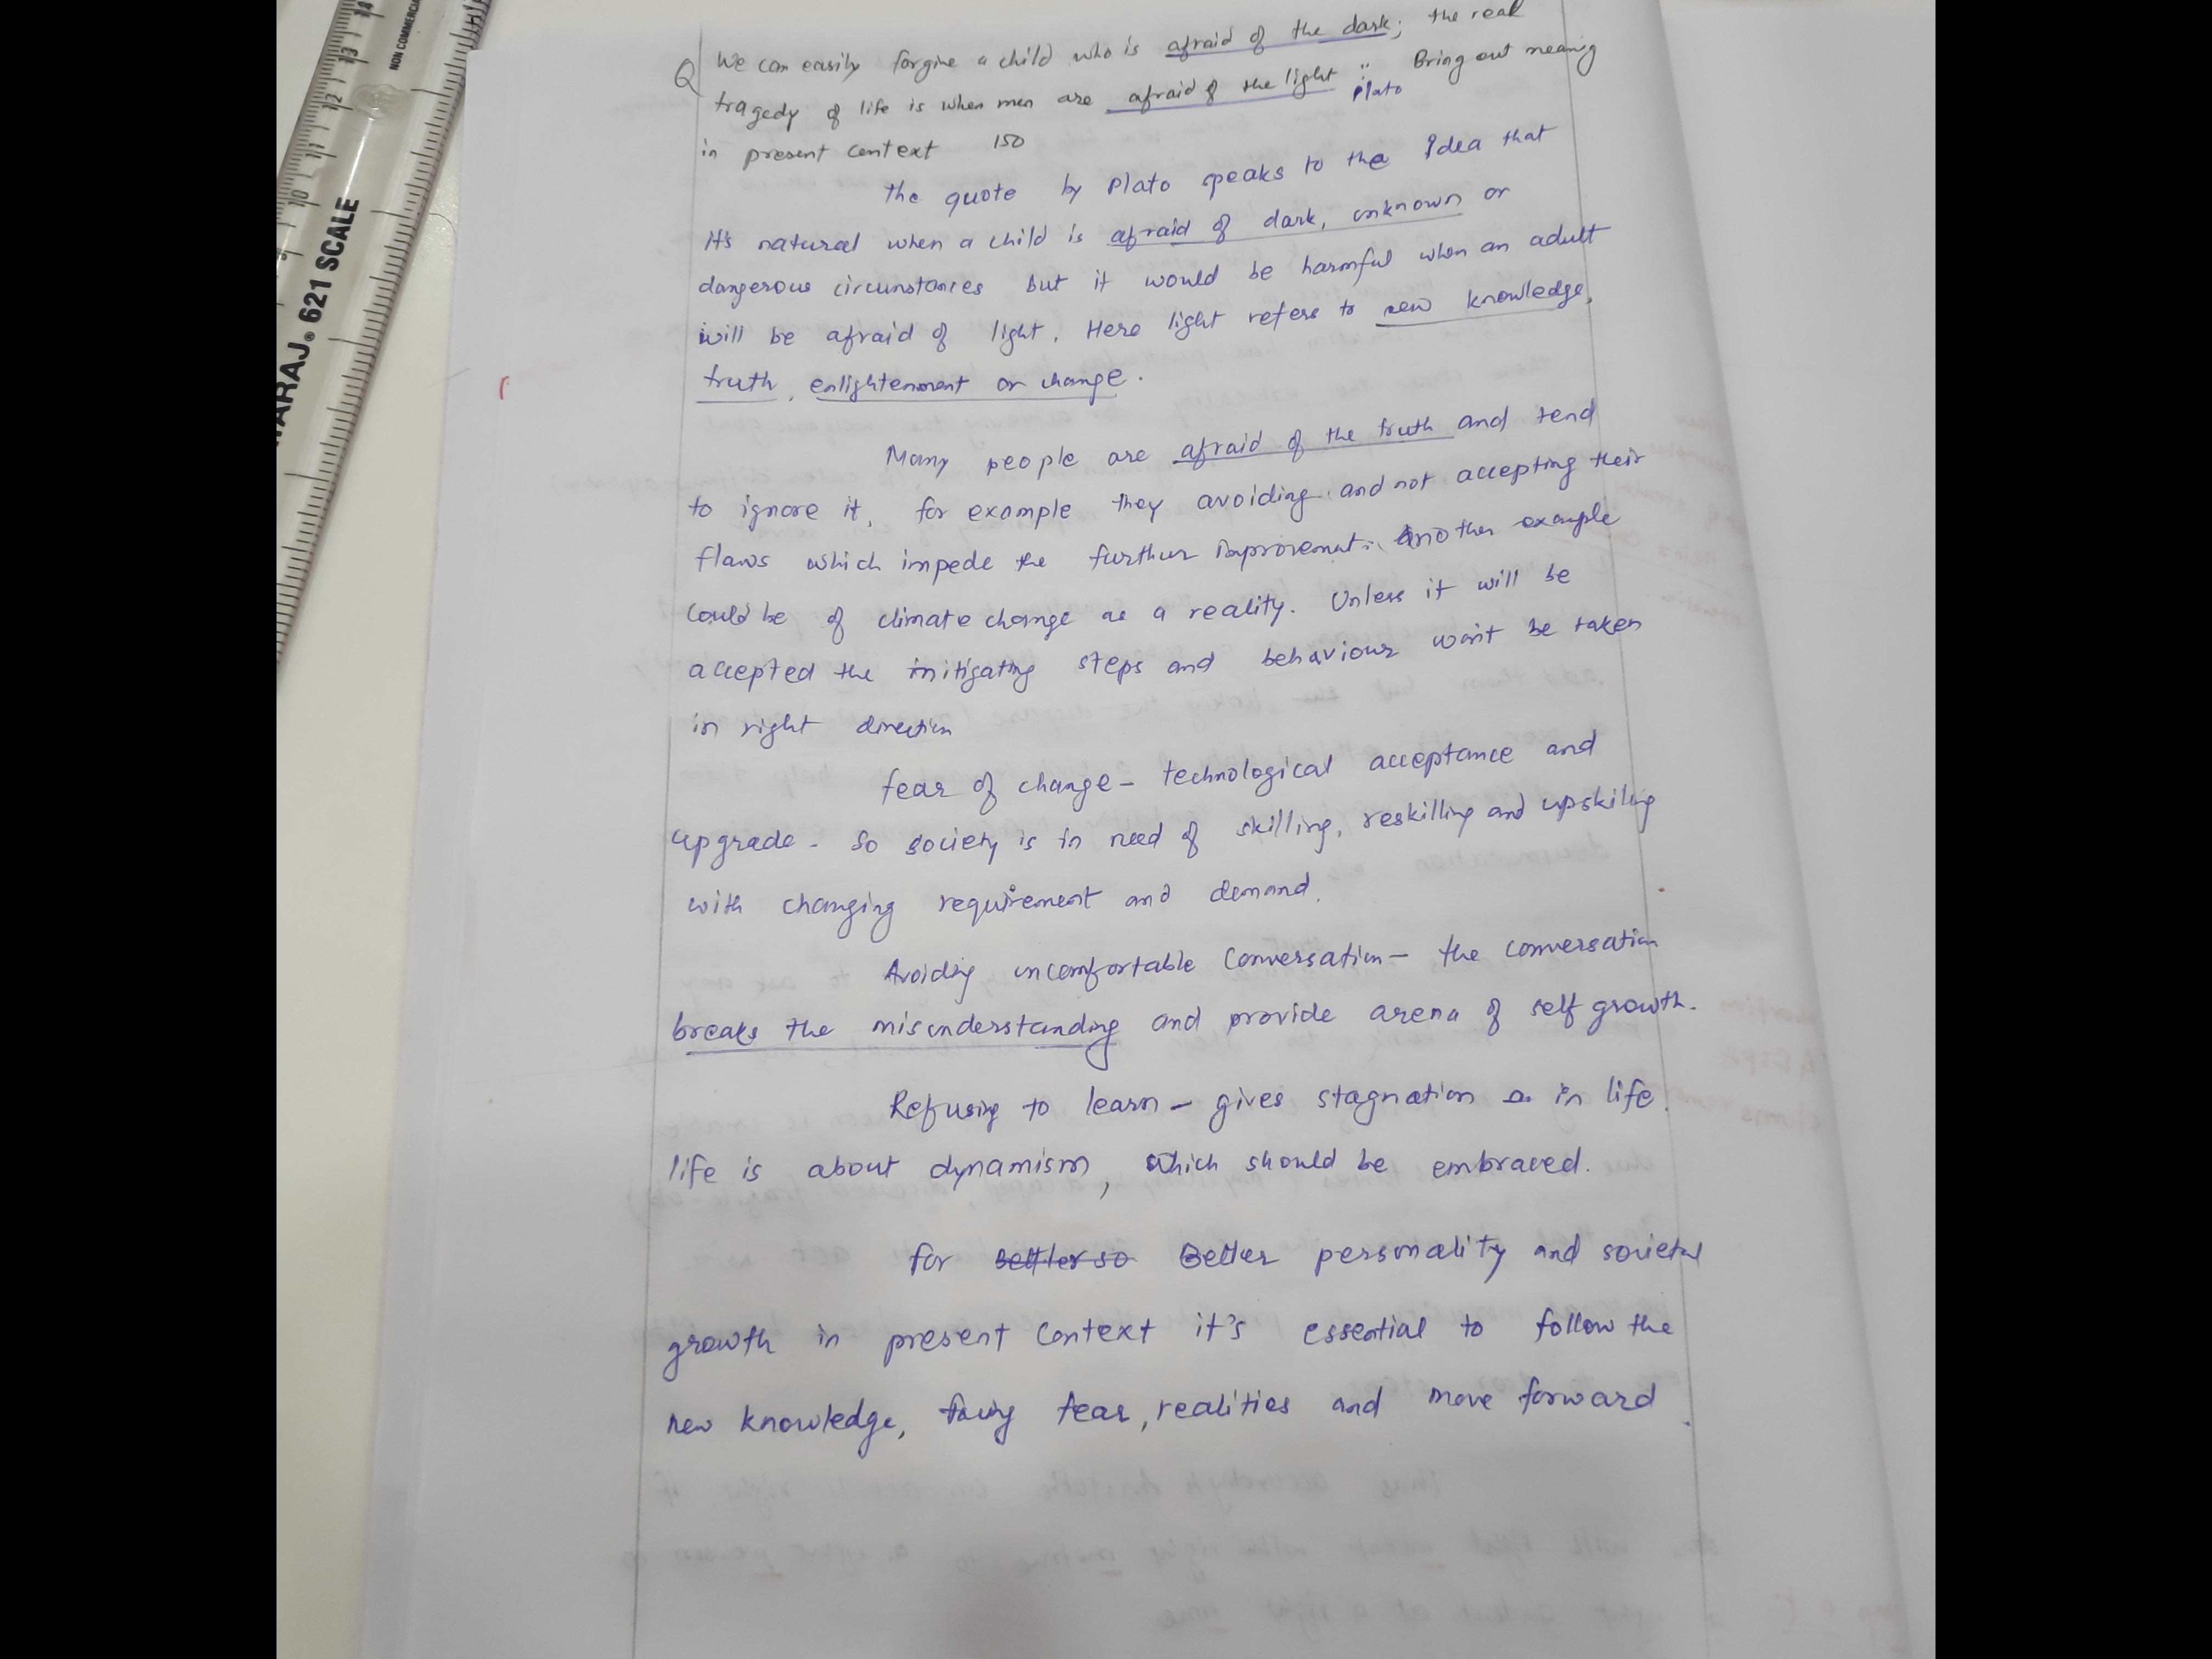 NON COMMERCIA
14
13
12
11
10
9
ARAJ® 621 SCALE
Q We can easily forgive a child who is afraid of the dark; the real
tragedy of life is when men are afraid of the light". Bring out meaning
Plato
in present context 150
The quote by Plato speaks to the Idea that
it's natural when a child is afraid of dark, unknown or
dangerous circumstances but it would be harmful when an adult
will be afraid of light. Here light refers to new knowledge,
truth, enlightenment or change.
Many people are afraid of the truth and tend
to ignore it, for example they avoiding and not accepting their
flaws which impede the further improvement. Another example
could be of climate change as a reality. Unless it will be
accepted the mitigating steps and behaviour won't be taken
in right direction
fear of change - technological acceptance and
upgrade - so society is in need of skilling, reskilling and upskiling
with changing requirement and demand.
Avoiding uncomfortable conversation - the conversation
breaks the misunderstanding and provide arena of self growth.
Refusing to learn - gives stagnation in life.
life is about dynamism, which should be embraced.
for better so Better personality and societal
growth in present context it's essential to follow the
new knowledge, facing fear, realities and move forward.